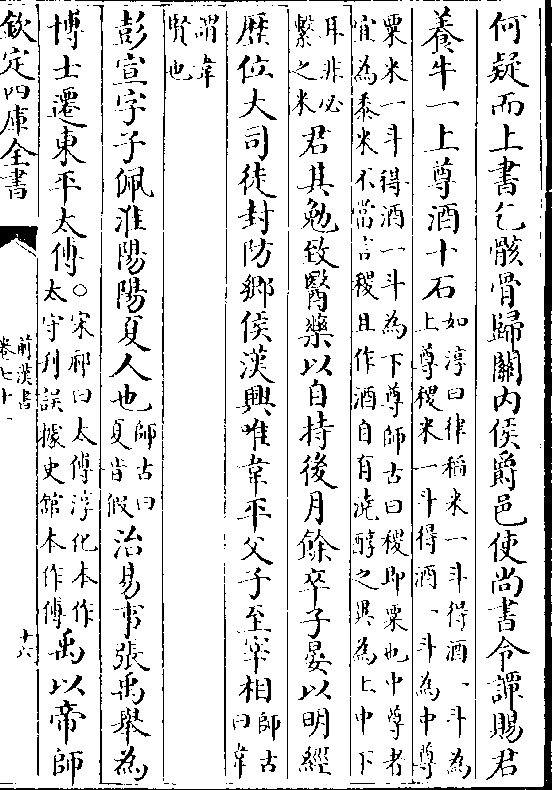 何疑而上書乞骸骨歸關内侯爵邑使尚書令譚賜君
養牛一上尊酒十石如淳曰律稻米一斗得酒一斗為
上尊稷米一斗得酒一斗為中尊
粟米一斗得酒一斗為下尊師古曰稷即粟也中尊者
宜為黍米不當言稷且作酒自有澆醇之異為上中下
耳非必
繫之米君其勉致醫藥以自持後月餘卒子晏以明經
歴位大司徒封防鄉侯漢興唯韋平父子至宰相師古
曰韋
謂韋
賢也
彭宣字子佩淮陽陽夏人也師古曰
夏音假治易事張禹舉為
博士遷東平太傅○宋祁曰太傅淳化本作
太守刋誤據史館本作傅禹以帝師
欽定四庫全書
前漢書
卷七十一
十六